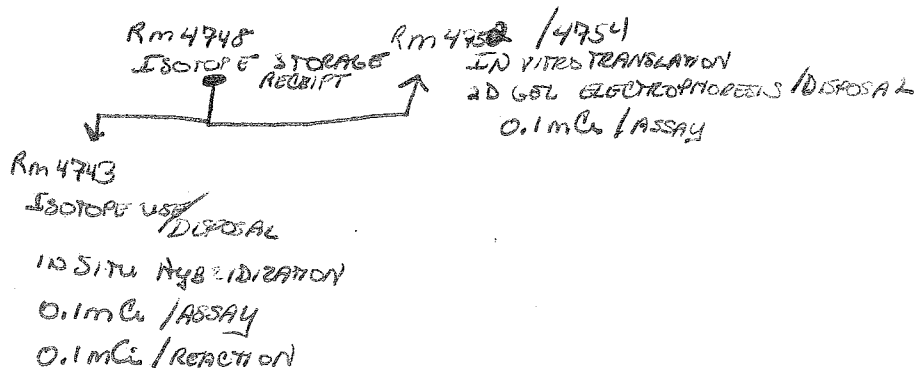 Rm 4748
ISOTOPE STORAGE
RECEIPT
Rm 4752 /4754
IN VITRO TRANSLATION
2D GEL ELECTROPHORESIS/DISPOSAL
0.1 mCi /ASSAY
Rm 4743
ISOTOPE USE/
DISPOSAL
IN SITU HYBRIDIZATION
0.1 mCi /ASSAY
0.1 mCi /REACTION